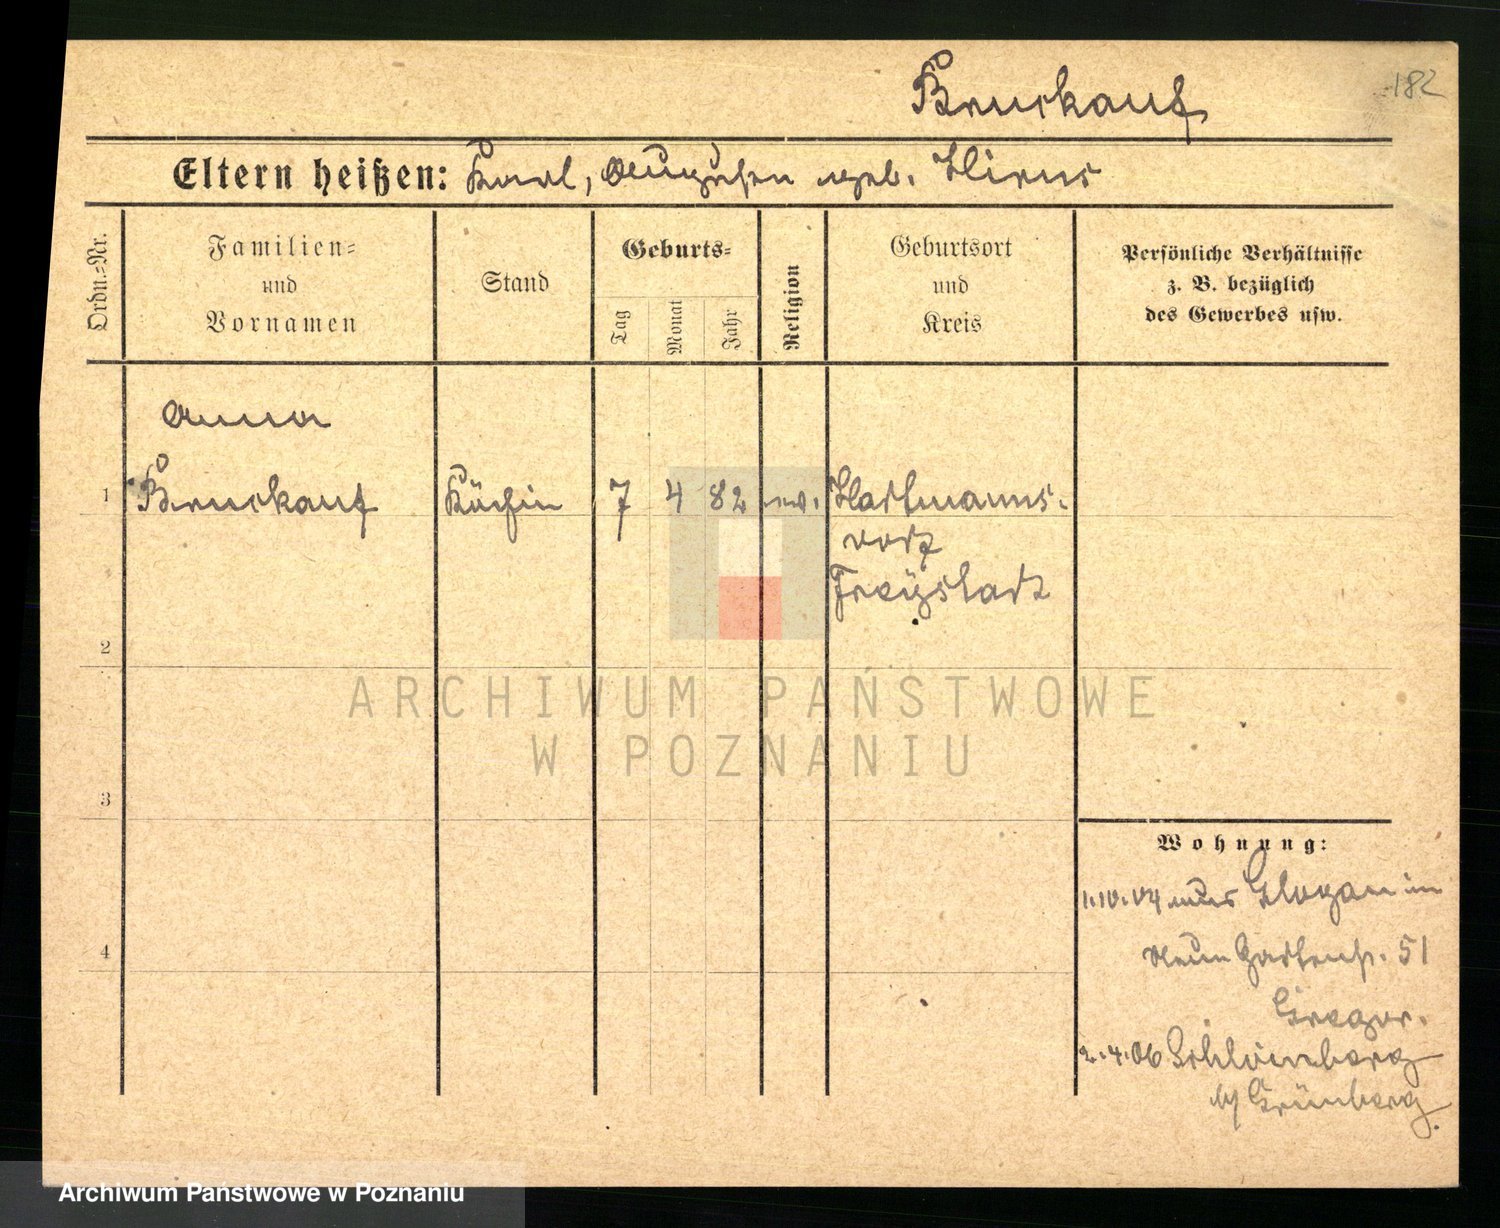 182
Bruckauf
Eltern heißen: Karl, Augusten geb. Hirus
Ordn.=Nr.
Familien=
und
Vornamen
Stand
Geburts=
Tag
Monat
Jahr
Religion
Geburtsort
und
Kreis
Persönliche Verhältnisse
z. B. bezüglich
des Gewerbes usw.
Anna
1 Bruckauf Köchin 7 4 82 ev. Hartmanns-
dorf
Freystadt
2
ARCHIWUM PAŃSTWOWE
W POZNANIU
3
Wohnung:
1.10.04 aus Glogau in
4
Neue Gartenstr. 51
Gregor.
2.4.06
b/ Grünberg.
Archiwum Państwowe w Poznaniu